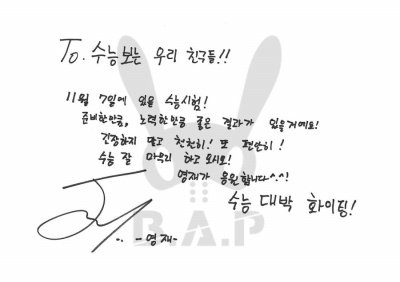 To. 수능보는 우리 친구들!!
11월 7일에 있을 수능시험!
준비한만큼, 노력한만큼 좋은 결과가 있을거예요!
긴장하지 말고 천천히! 또 편안히!
수능 잘 마무리 하고 오시오!
영재가 응원합니다^.^!
수능 대박 화이팅!
-영재-
B.A.P